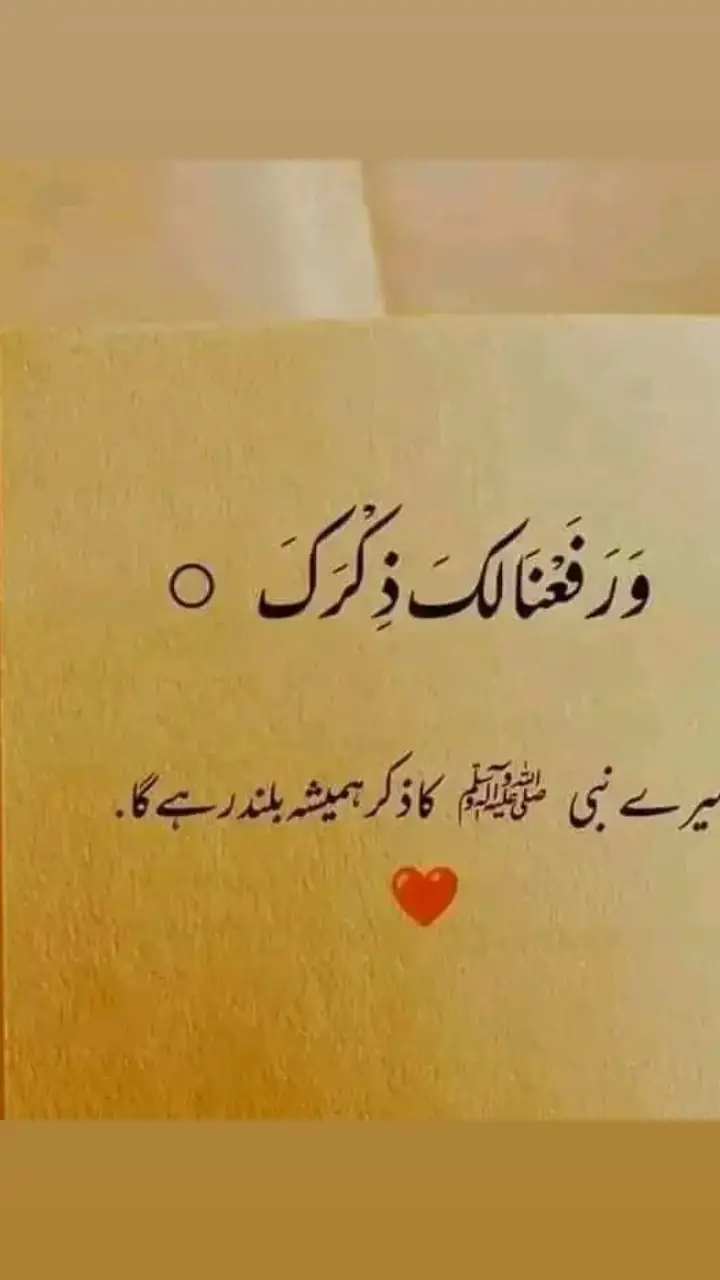 وَرَفَعْنَا لَكَ ذِكْرَكَ ○
میرے نبی ﷺ کا ذکر ہمیشہ بلند رہے گا.
❤️